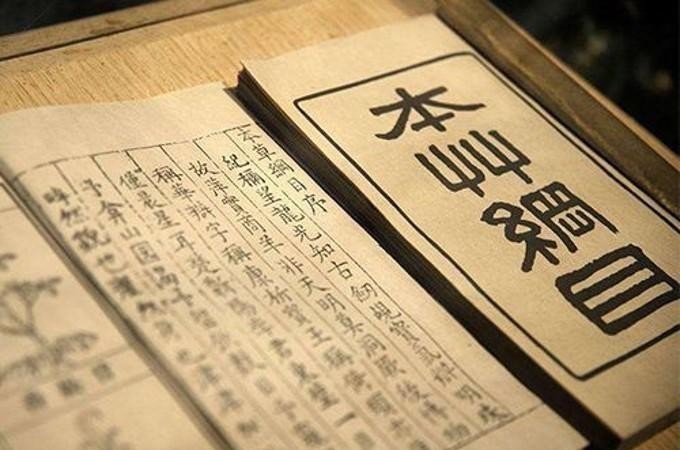 本艸綱目
本草綱目序
紀稱望龍光知古劍覘寶氣辨明珠
故萍實商羊非天明莫洞厥後博物
稱華辯字稱康析寶玉稱倚頓
僅晨星耳楚蘄陽李君東璧一
予弇山園謁予留飲數日予
睟然貌也癯然